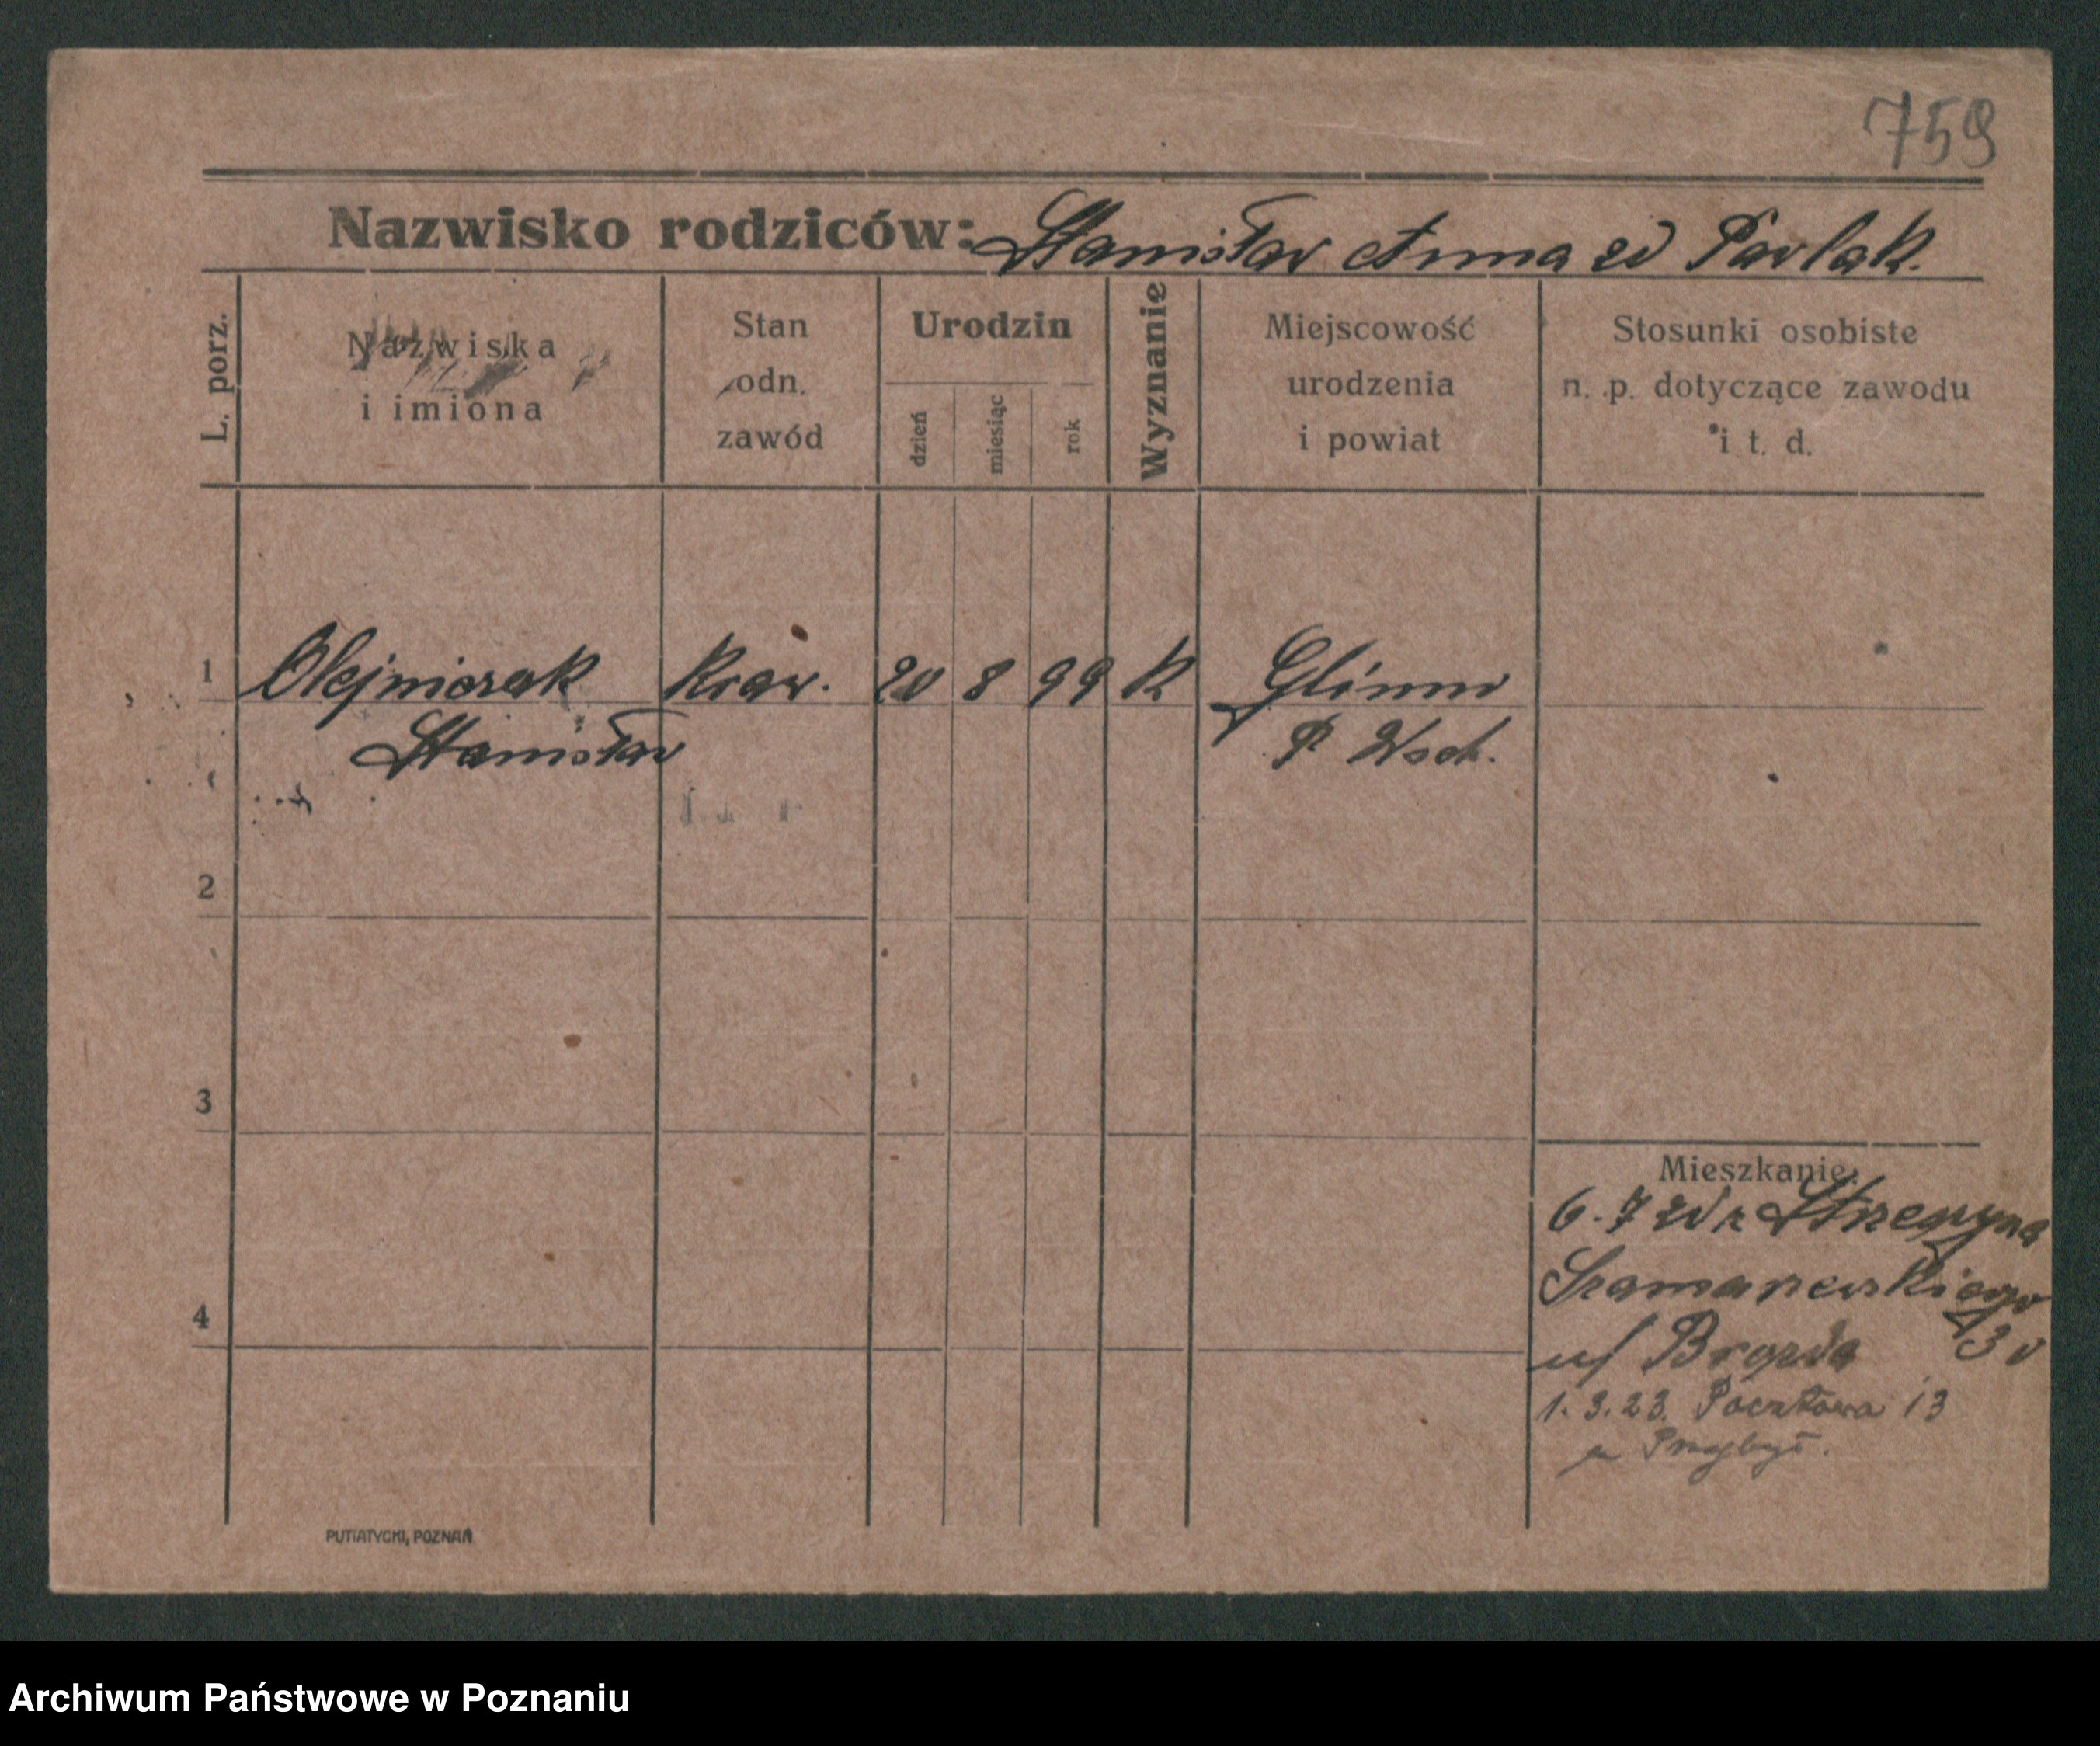 759
Nazwisko rodziców: Stanisław Anna zd Pawlak.
L. porz.
Nazwiska
i imiona
Stan
odn.
zawód
Urodzin
dzień
miesiąc
rok
Wyznanie
Miejscowość
urodzenia
i powiat
Stosunki osobiste
n. p. dotyczące zawodu
i t. d.
1 Olejniczak Kraw. 20 8 99 K Glinno
Stanisław P Wsch.
2
3
4
Mieszkanie:
6. 7 z Strzeżyna
Szamarzewskiego
u/ Brozda
1. 3. 23. Pocztowa 13
u Przybył.
PUTIATYCKI, POZNAŃ
Archiwum Państwowe w Poznaniu